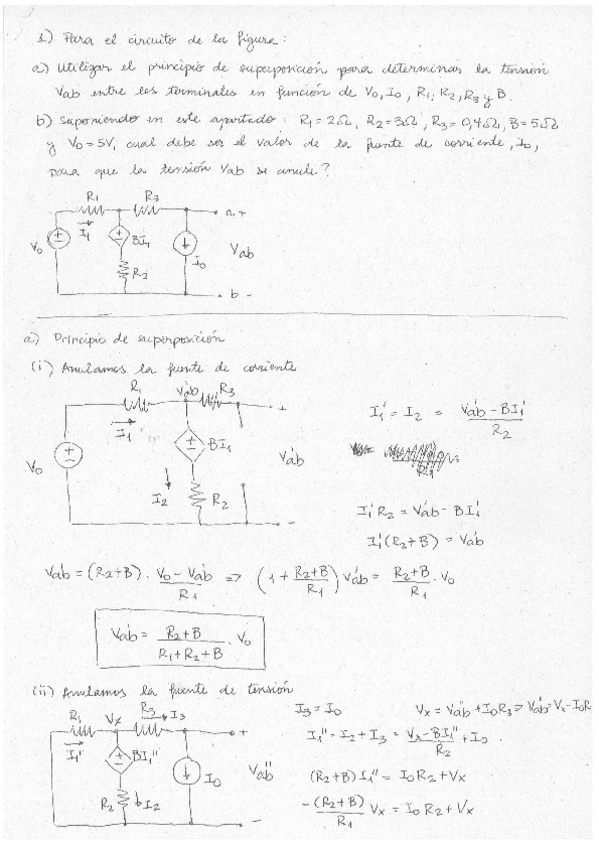 1) Para el circuito de la figura:
a) Utilizar el principio de superposición para determinar la tensión
Vab entre los terminales en función de V₀, I₀, R₁, R₂, R₃ y B.
b) Suponiendo en este apartado: R₁ = 2Ω, R₂ = 3Ω, R₃ = 0,4Ω, B = 5Ω
y V₀ = 5V, cual debe ser el valor de la fuente de corriente, I₀,
para que la tensión Vab se anule?
R₁ R₃
a +
I₁ BI₁ I₀ Vab
V₀
R₂
b -
a) Principio de superposición
(i) Anulamos la fuente de corriente
R₁ Vab' R₃ +
I₁' = I₂ = (Vab' - BI₁') / R₂
I₁' BI₁ Vab'
V₀
I₂ R₂ -
I₁' R₂ = Vab' - BI₁'
I₁' (R₂ + B) = Vab'
Vab' = (R₂ + B) · (V₀ - Vab') / R₁ => (1 + (R₂ + B) / R₁) Vab' = (R₂ + B) / R₁ · V₀
Vab' = (R₂ + B) / (R₁ + R₂ + B) · V₀
(ii) Anulamos la fuente de tensión
R₁ Vx R₃ I₃ +
I₃ = I₀ Vx = Vab'' + I₀R₃ => Vab'' = Vx - I₀R
I₁'' BI₁'' I₀ Vab''
I₁'' = I₂ + I₃ = (Vx - BI₁'') / R₂ + I₀.
R₂ I₂ -
(R₂ + B) I₁'' = I₀R₂ + Vx
-(R₂ + B) / R₁ Vx = I₀ R₂ + Vx